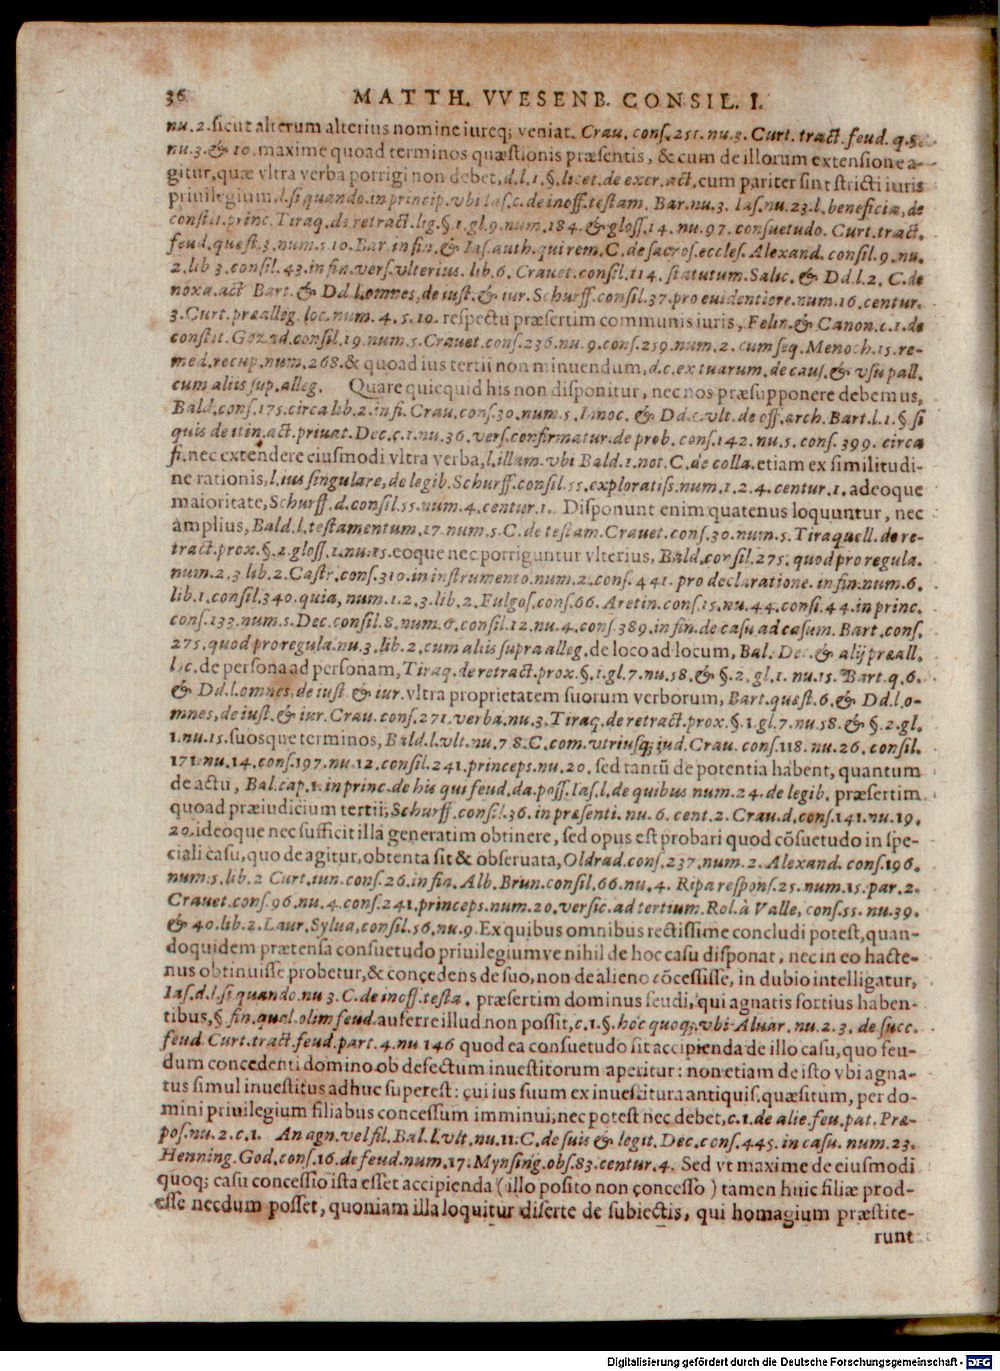 36 MATTH. VVESENB. CONSIL. I.
nu. 2. sicut alterum alterius nomine iureq; veniat. Crau. cons. 251. nu. 3. Curt. tract. feud. q. 8.
nu. 3. & 10. maxime quoad terminos quæstionis præsentis, & cum de illorum extensione a-
gitur, quæ vltra verba porrigi non debet, d. l. 1. §. licet. de excr. act. cum pariter sint stricti iuris
priuilegium, l. si quando. in princip. vbi Ias. C. de inoff. testam. Bar. nu. 3. Ias. nu. 23. l. beneficiæ, de
constit. princ. Tiraq. de retract. lig. §. 1. gl. 9. num. 184. & gloss. 14. nu. 97. consuetudo. Curt. tract.
feud. quest. 3. num. 5. 10. Bar. in fin. & Ias. auth. qui rem. C. de sacros. eccles. Alexand. consil. 9. nu.
2. lib 3. consil. 43. in fin. vers. vlterius. lib. 6. Crauet. consil. 114. statutum. Salic. & Dd. l. 2. C. de
noxa. act Bart. & Dd. l. omnes, de iust. & iur. Schurff. consil. 37. pro euidentiore. num. 16. centur.
3. Curt. præalleg. loc. num. 4. 5. 10. respectu præsertim communis iuris, Felin. & Canon. c. 1. de
constit. Gozad. consil. 19. num. 5. Crauet. cons. 236. nu. 9. cons. 259. num. 2. cum seq. Menoch. 15. re-
med. recup. num. 268. & quoad ius tertii non minuendum, d. c. ex tuarum. de caus. & vsu pall.
cum aliis sup. alleg. Quare quicquid his non disponitur, nec nos præsupponere debemus,
Bald. cons. 175. circa lib. 2. in fi. Crau. cons. 30. num. 5. Innoc. & Dd. c. vlt. de off. arch. Bart. l. 1. §. si
quis de itin. act. priuat. Dec. c. 1. nu. 36. vers. confirmatur. de prob. cons. 142. nu. 5. cons. 399. circa
fi. nec extendere eiusmodi vltra verba, l. illam. vbi Bald. 1. not. C. de colla. etiam ex similitudi-
ne rationis, l. ius singulare, de legib. Schurff. consil. 55. exploratiss. num. 1. 2. 4. centur. 1. adeoque
maioritate, Schurff. d. consil. 55. num. 4. centur. 1. Disponunt enim quatenus loquuntur, nec
amplius, Bald. l. testamentum. 17. num. 5. C. de testam. Crauet. cons. 30. num. 5. Tiraquell. de re-
tract. prox. §. 2. gloss. 1. nu. 15. eoque nec porriguntur vlterius, Bald. consil. 275. quod pro regula.
num. 2. 3 lib. 2. Castr. cons. 310. in instrumento. num. 2. cons. 441. pro declaratione. in fin. num. 6.
lib. 1. consil. 340. quia, num. 1. 2. 3. lib. 2. Fulgos. cons. 66. Aretin. cons. 15. nu. 44. consi. 44. in princ.
cons. 133. num. 5. Dec. consil. 8. num. 6. consil. 12. nu. 4. cons. 389. in fin. de casu ad casum. Bart. cons.
275. quod pro regula. nu. 3. lib. 2. cum aliis supra alleg. de loco ad locum, Bal. Dec. & alij præall.
loc. de persona ad personam, Tiraq. de retract. prox. §. 1. gl. 7. nu. 58. & §. 2. gl. 1. nu. 15. Bart. q. 6.
& Dd. l. omnes, de iust. & iur. vltra proprietatem suorum verborum, Bart. quæst. 6. & Dd. l. o-
mnes, de iust. & iur. Crau. cons. 271. verba. nu. 3. Tiraq. de retract. prox. §. 1. gl. 7. nu. 58. & §. 2. gl.
1. nu. 15. suosque terminos, Bald. l. vlt. nu. 7 8. C. com. vtriusq; iud. Crau. cons. 118. nu. 26. consil.
171. nu. 14. cons. 197. nu. 12. consil. 241. princeps. nu. 20. sed tantū de potentia habent, quantum
de actu, Bal. cap. 1. in princ. de his qui feud. da. poss. Ias. l. de quibus num. 24. de legib. præsertim
quoad præiudicium tertii, Schurff. consil. 36. in præsenti. nu. 6. cent. 2. Crau. d. cons. 141. nu. 19.
20. ideoque nec sufficit illa generatim obtinere, sed opus est probari quod cōsuetudo in spe-
ciali casu, quo de agitur, obtenta sit & obseruata, Oldrad. cons. 237. num. 2. Alexand. cons. 196.
num. 5. lib. 2 Curt. iun. cons. 26. in fin. Alb. Brun. consil. 66. nu. 4. Ripa respons. 25. num. 15. par. 2.
Crauet. cons. 96. nu. 4. cons. 241. princeps. num. 20. versic. ad tertium. Rol. à Valle, cons. 55. nu. 39.
& 40. lib. 2. Laur. Sylua, consil. 56, nu. 9. Ex quibus omnibus rectissime concludi potest, quan-
doquidem prætensa consuetudo priuilegiumve nihil de hoc casu disponat, nec in eo hacte-
nus obtinuisse probetur, & concedens de suo, non de alieno cōcessisse, in dubio intelligatur,
Ias. d. l. si quando. nu 3. C. de inoff. testa. præsertim dominus feudi, qui agnatis fortius haben-
tibus, § fin. qual. olim feud. auferre illud non possit, c. 1. §. hoc quoq; vbi Aluar. nu. 2. 3. de succ.
feud. Curt. tract. feud. part. 4. nu 146 quod ea consuetudo sit accipienda de illo casu, quo feu-
dum concedenti domino ob defectum inuestitorum aperitur: non etiam de isto vbi agna-
tus simul inuestitus adhuc superest: cui ius suum ex inuestitura antiquis. quæsitum, per do-
mini priuilegium filiabus concessum imminui, nec potest nec debet, c. 1. de alie. feu. pat. Præ-
pos. nu. 2. c. 1. An agn. vel fil. Bal. l. vlt. nu. 11. C. de suis & legit. Dec. cons. 445. in casu. num. 23.
Henning. God. cons. 16. de feud. num. 17. Mynsing. obs. 83. centur. 4. Sed vt maxime de eiusmodi
quoq; casu concessio ista esset accipienda ( illo posito non concesso ) tamen huic filiæ prod-
esse necdum posset, quoniam illa loquitur diserte de subiectis, qui homagium præstite-
runt
Digitalisierung gefördert durch die Deutsche Forschungsgemeinschaft - DFG